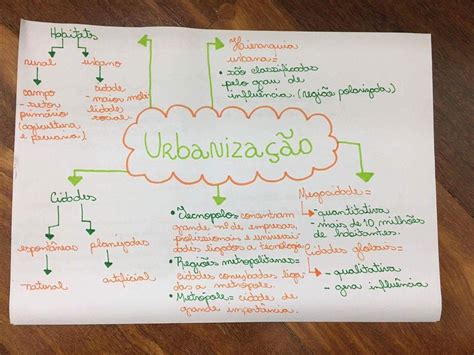 Habitats
rural
urbano
campo
- setor
primário
(agricultura
e pecuária)
cidade
- maior mobi-
lidade
social
Hierarquia
urbana=
• são classificadas
pelo grau de
influência. (região polarizada)
Urbanização
Cidades
espontâneas
planejadas
natural
artificial
• Tecnopolos concentram
grande nº de empresas,
profissionais e universi-
dades ligados a tecnologia
• Regiões metropolitanas=
cidades conurbadas liga-
das a metrópole.
• Metrópole= cidade de
grande importância.
Megacidade=
quantitativa
- mais de 10 milhões
de habitantes.
Cidades globais=
- qualitativa
- gera influência